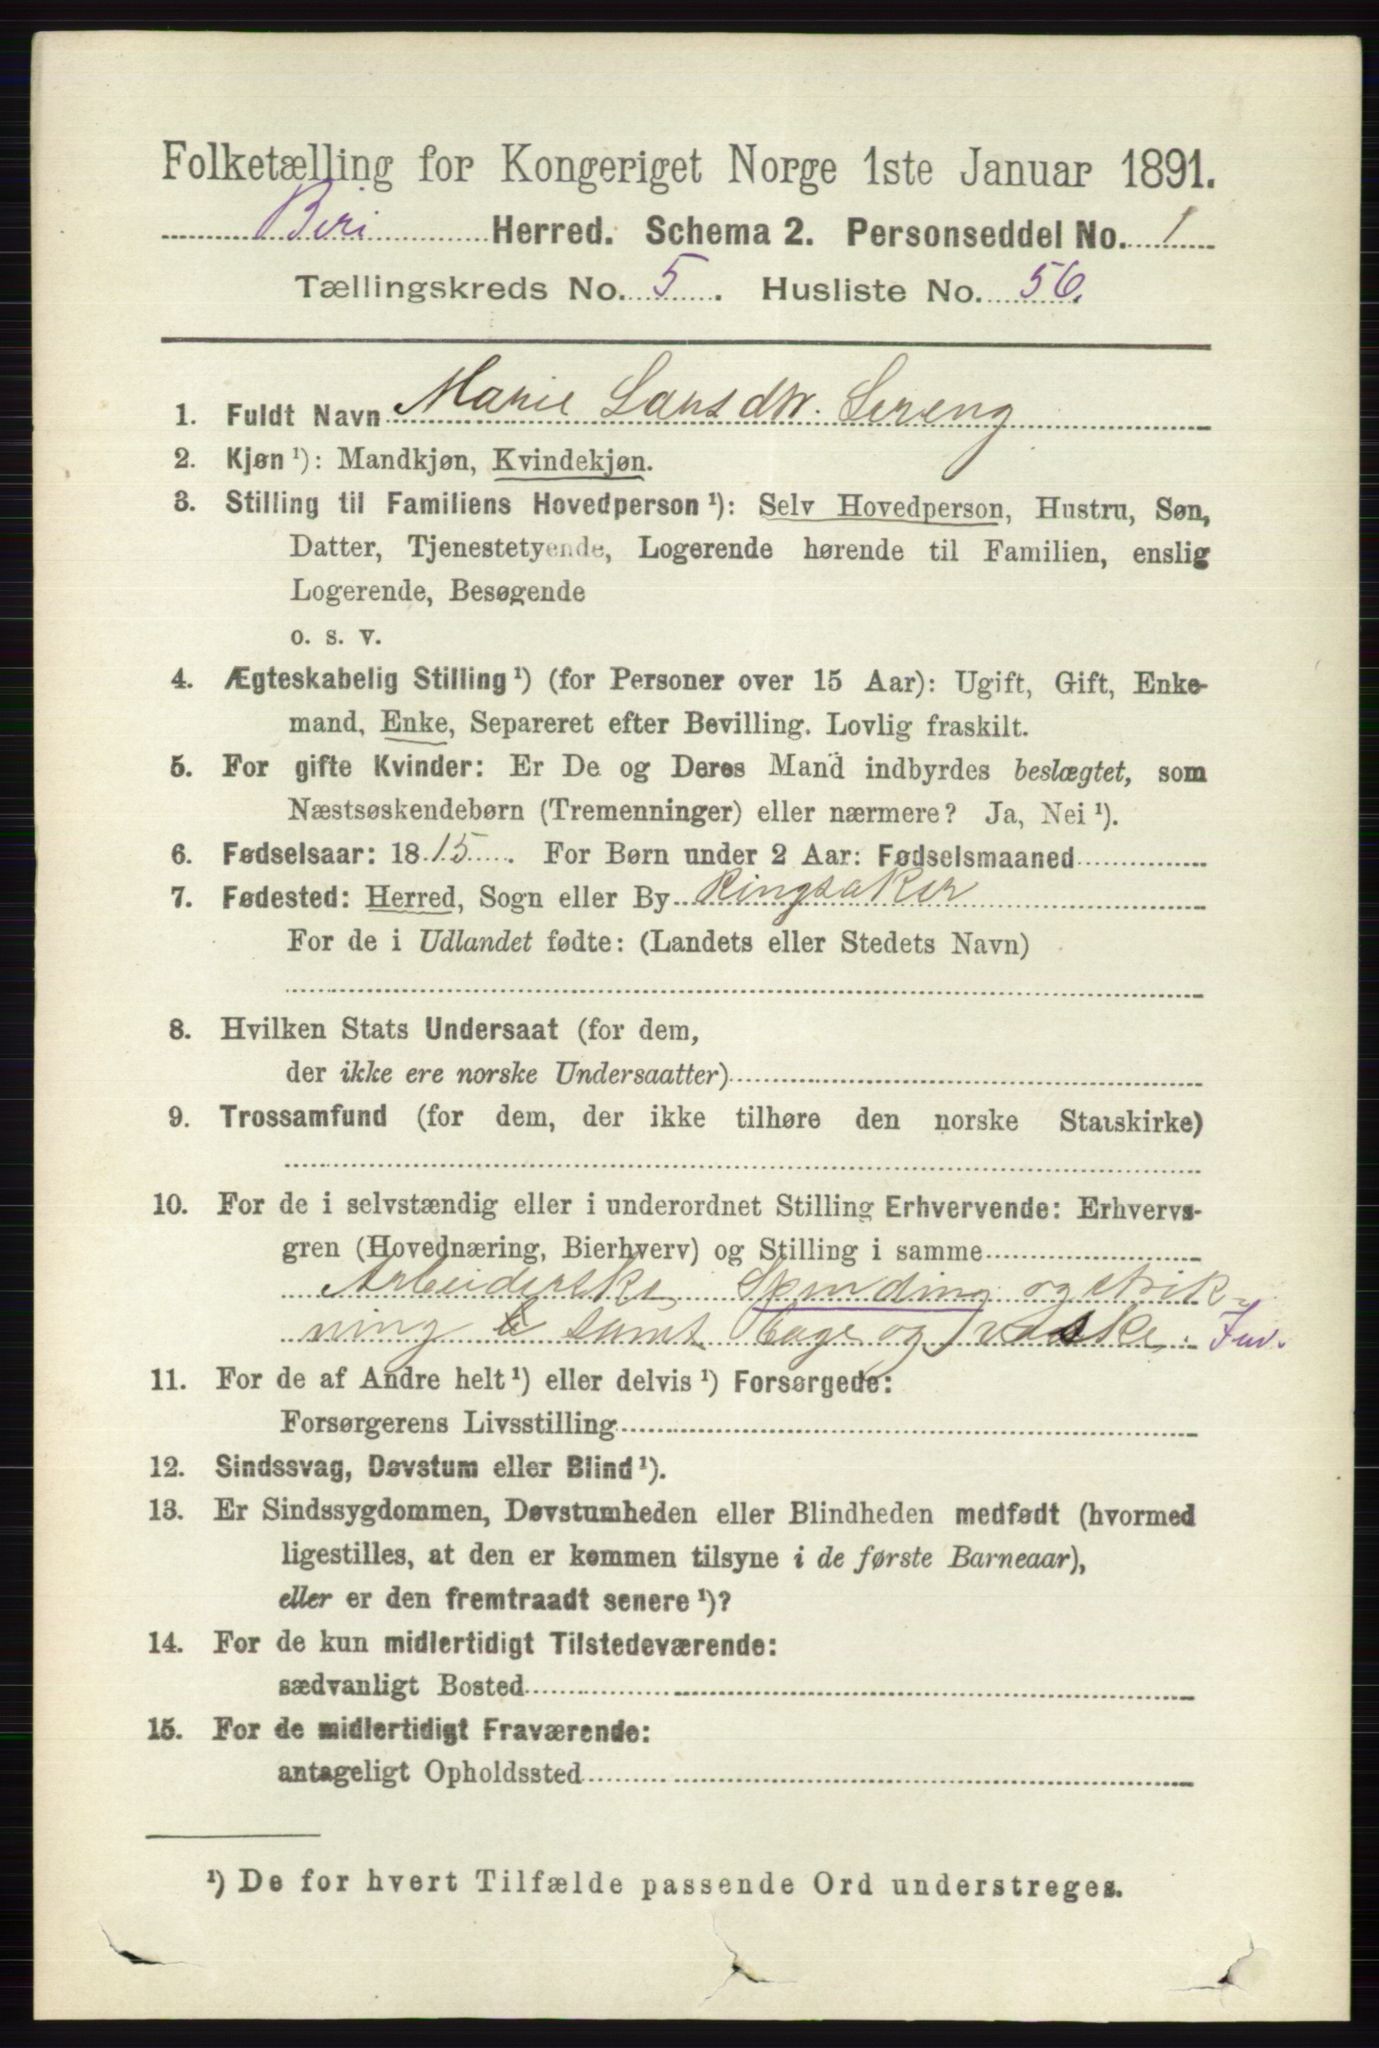 Folketælling for Kongeriget Norge 1ste Januar 1891.
Biri Herred. Schema 2. Personseddel No. 1
Tællingskreds No. 5. Husliste No. 56.
1. Fuldt Navn Marie Larsdtr. Sereng
2. Kjøn ¹): Mandkjøn, Kvindekjøn.
3. Stilling til Familiens Hovedperson ¹): Selv Hovedperson, Hustru, Søn,
Datter, Tjenestetyende, Logerende hørende til Familien, enslig
Logerende, Besøgende
o. s. v.
4. Ægteskabelig Stilling ¹) (for Personer over 15 Aar): Ugift, Gift, Enke-
mand, Enke, Separeret efter Bevilling. Lovlig fraskilt.
5. For gifte Kvinder: Er De og Deres Mand indbyrdes beslægtet, som
Næstsøskendebørn (Tremenninger) eller nærmere? Ja, Nei ¹).
6. Fødselsaar: 1815. For Børn under 2 Aar: Fødselsmaaned
7. Fødested: Herred, Sogn eller By Ringsaker
For de i Udlandet fødte: (Landets eller Stedets Navn)
8. Hvilken Stats Undersaat (for dem,
der ikke ere norske Undersaatter)
9. Trossamfund (for dem, der ikke tilhøre den norske Statskirke)
10. For de i selvstændig eller i underordnet Stilling Erhvervende: Erhvervs-
gren (Hovednæring, Bierhverv) og Stilling i samme
Arbeiderske Spinding og strik-
ning samt Bage og vaske.
11. For de af Andre helt ¹) eller delvis ¹) Forsørgede:
Forsørgerens Livsstilling
12. Sindssvag, Døvstum eller Blind ¹).
13. Er Sindssygdommen, Døvstumheden eller Blindheden medfødt (hvormed
ligestilles, at den er kommen tilsyne i de første Barneaar),
eller er den fremtraadt senere ¹)?
14. For de kun midlertidigt Tilstedeværende:
sædvanligt Bosted
15. For de midlertidigt Fraværende:
antageligt Opholdssted
¹) De for hvert Tilfælde passende Ord understreges.